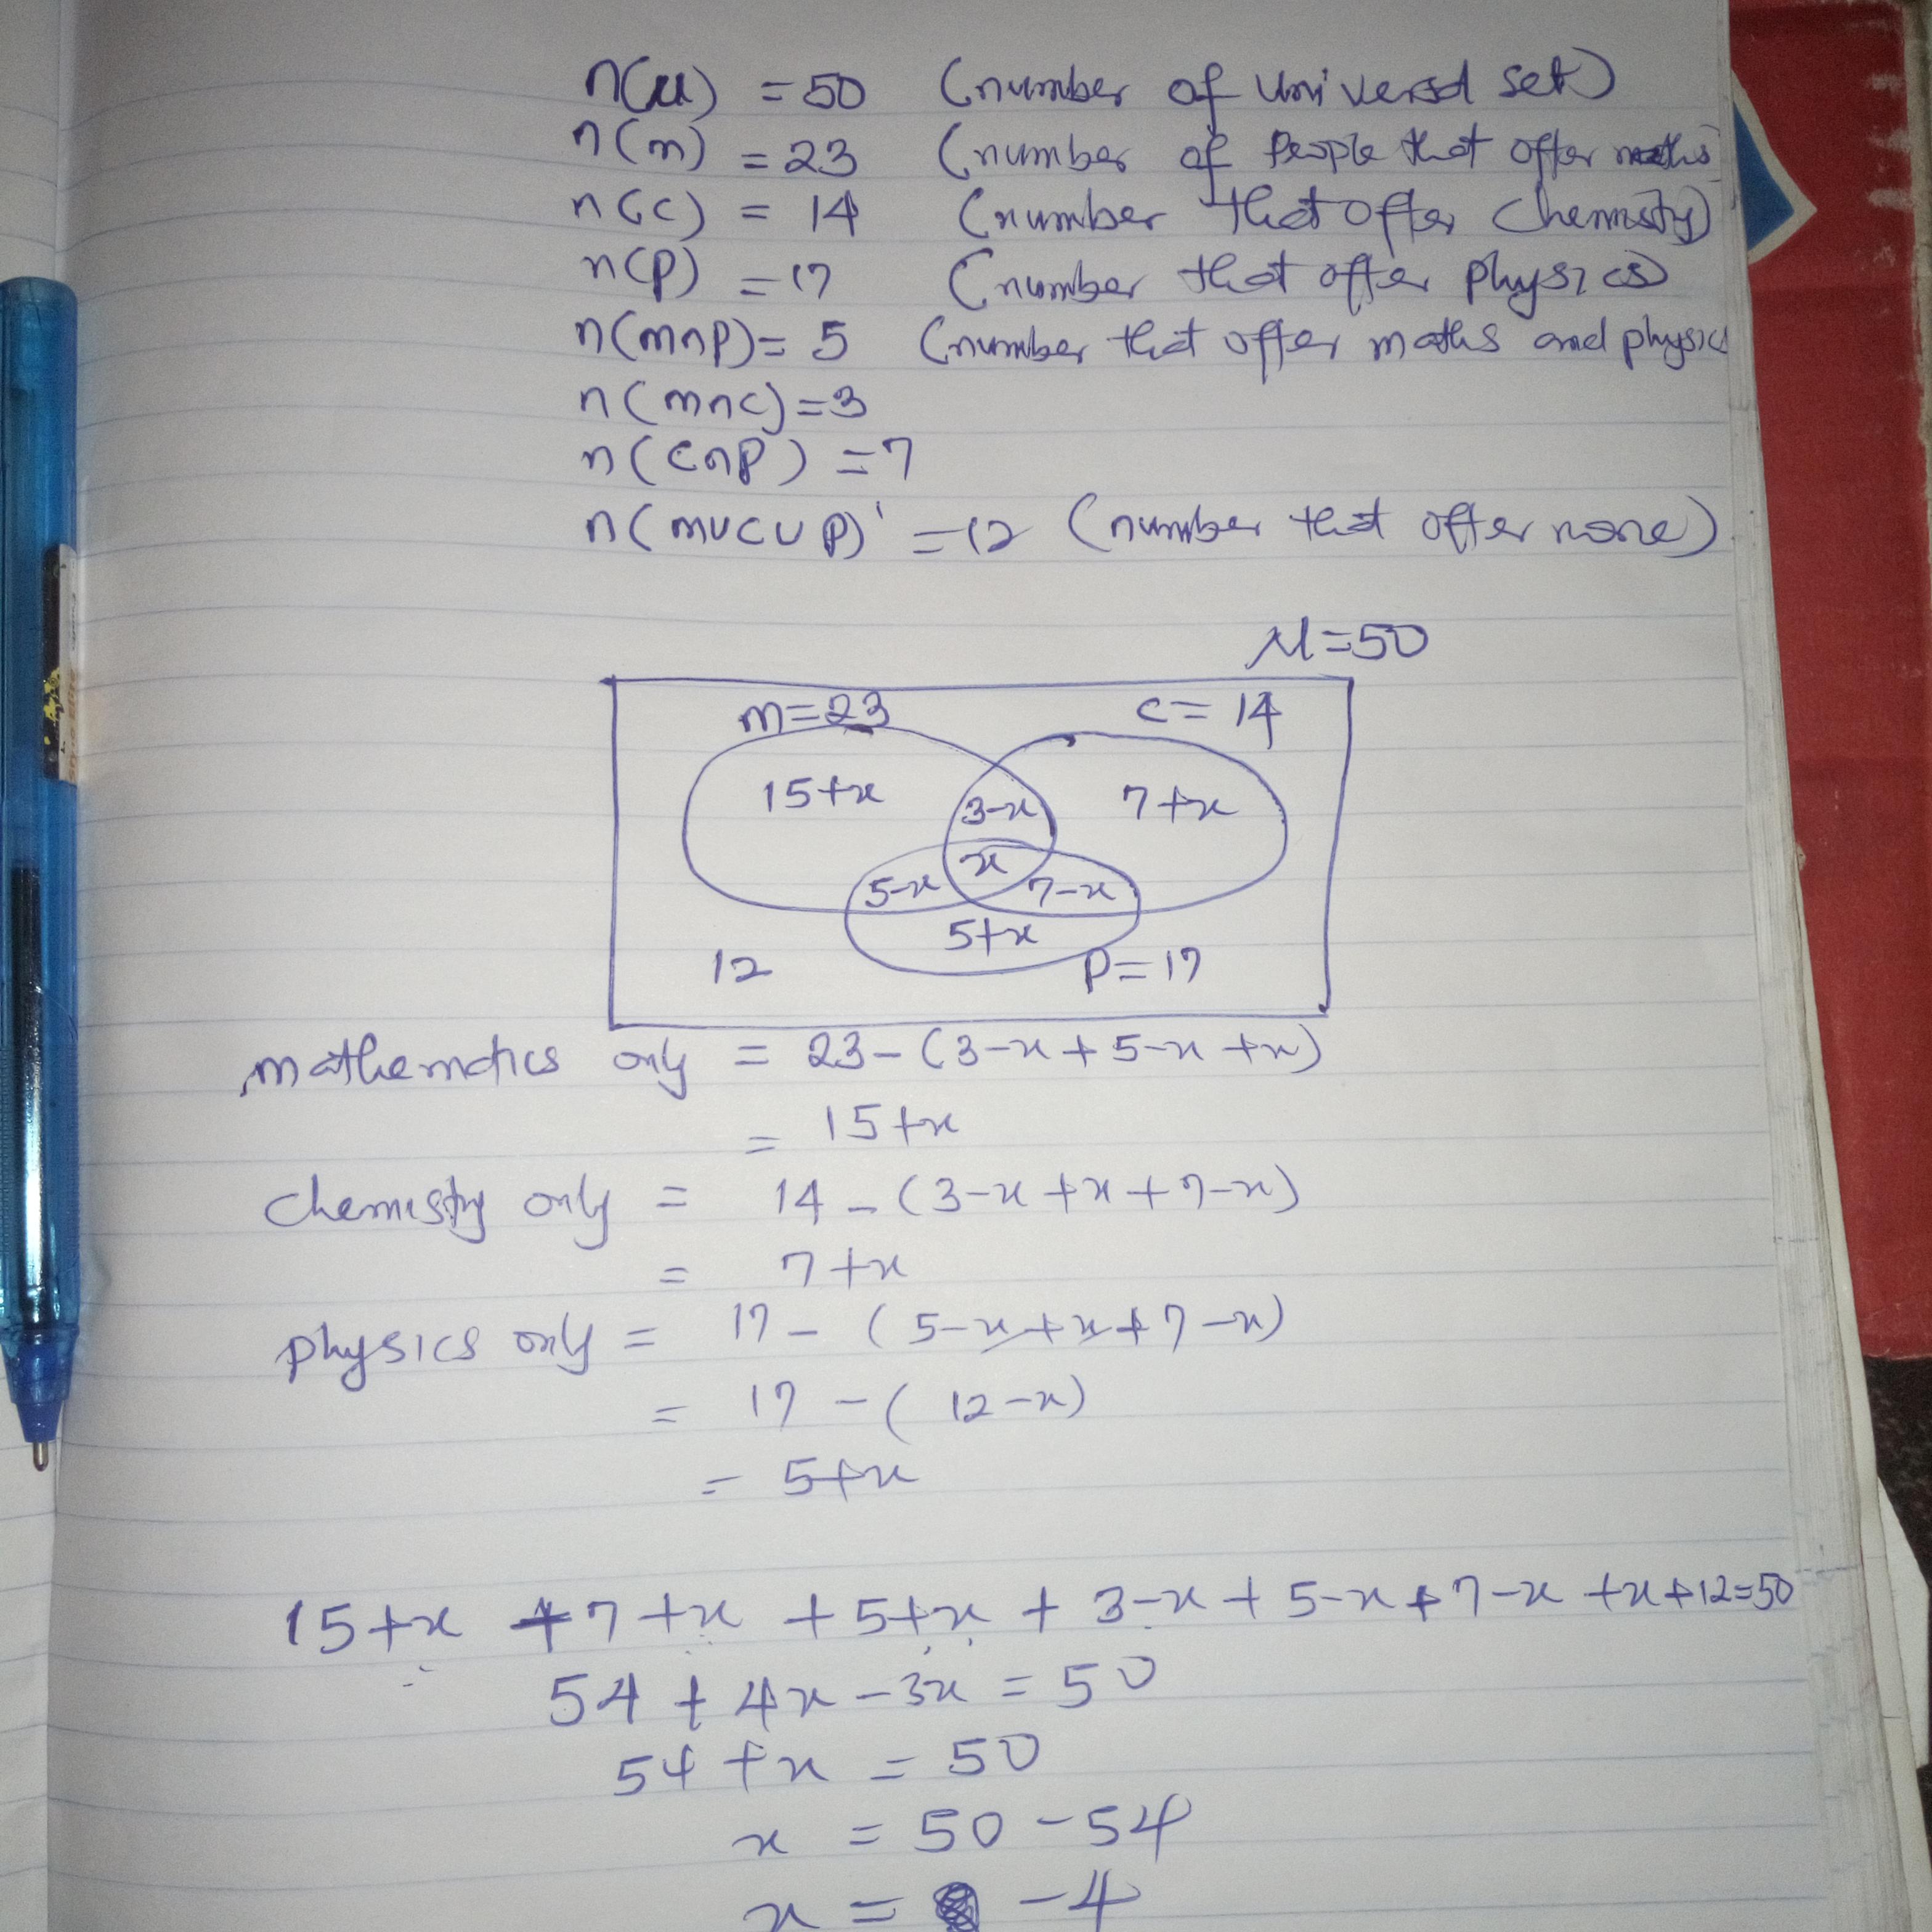 n(μ) = 50 (number of universal set)
n(m) = 23 (number of people that offer maths
n(c) = 14 (number that offer chemistry)
n(p) = 17 (number that offer physics)
n(m∩p) = 5 (number that offer maths and physics
n(m∩c) = 3
n(c∩p) = 7
n(m∪c∪p)' = 12 (number that offer none)
μ = 50
m = 23 c = 14
15+x 3-x 7+x
x
5-x 7-x
5+x
12 p = 17
mathematics only = 23 - (3-x + 5-x + x)
= 15+x
chemistry only = 14 - (3-x + x + 7-x)
= 7+x
physics only = 17 - (5-x + x + 7-x)
= 17 - (12-x)
= 5+x
15+x + 7+x + 5+x + 3-x + 5-x + 7-x + x + 12 = 50
54 + 4x - 3x = 50
54 + x = 50
x = 50 - 54
x = -4